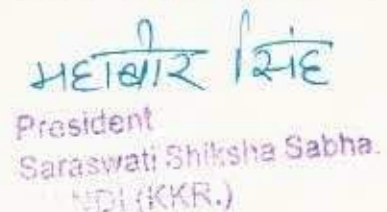 महाबीर सिंह
President
Saraswati Shiksha Sabha.
(KKR.)